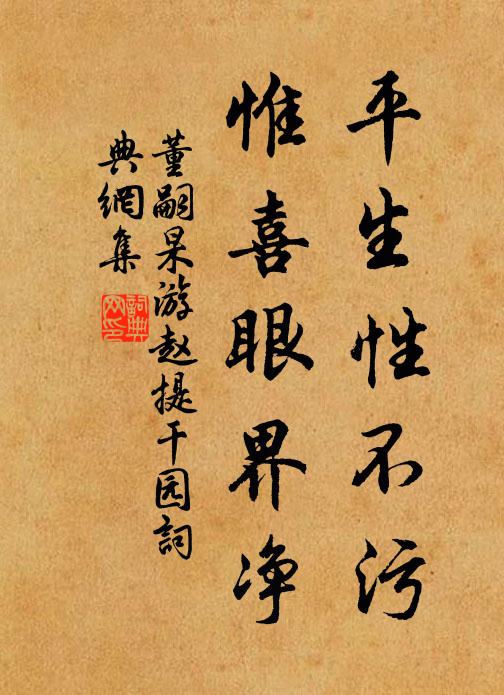 平生性不污
惟喜眼界净
董嗣杲游赵提干园词
典網集
詞典網印